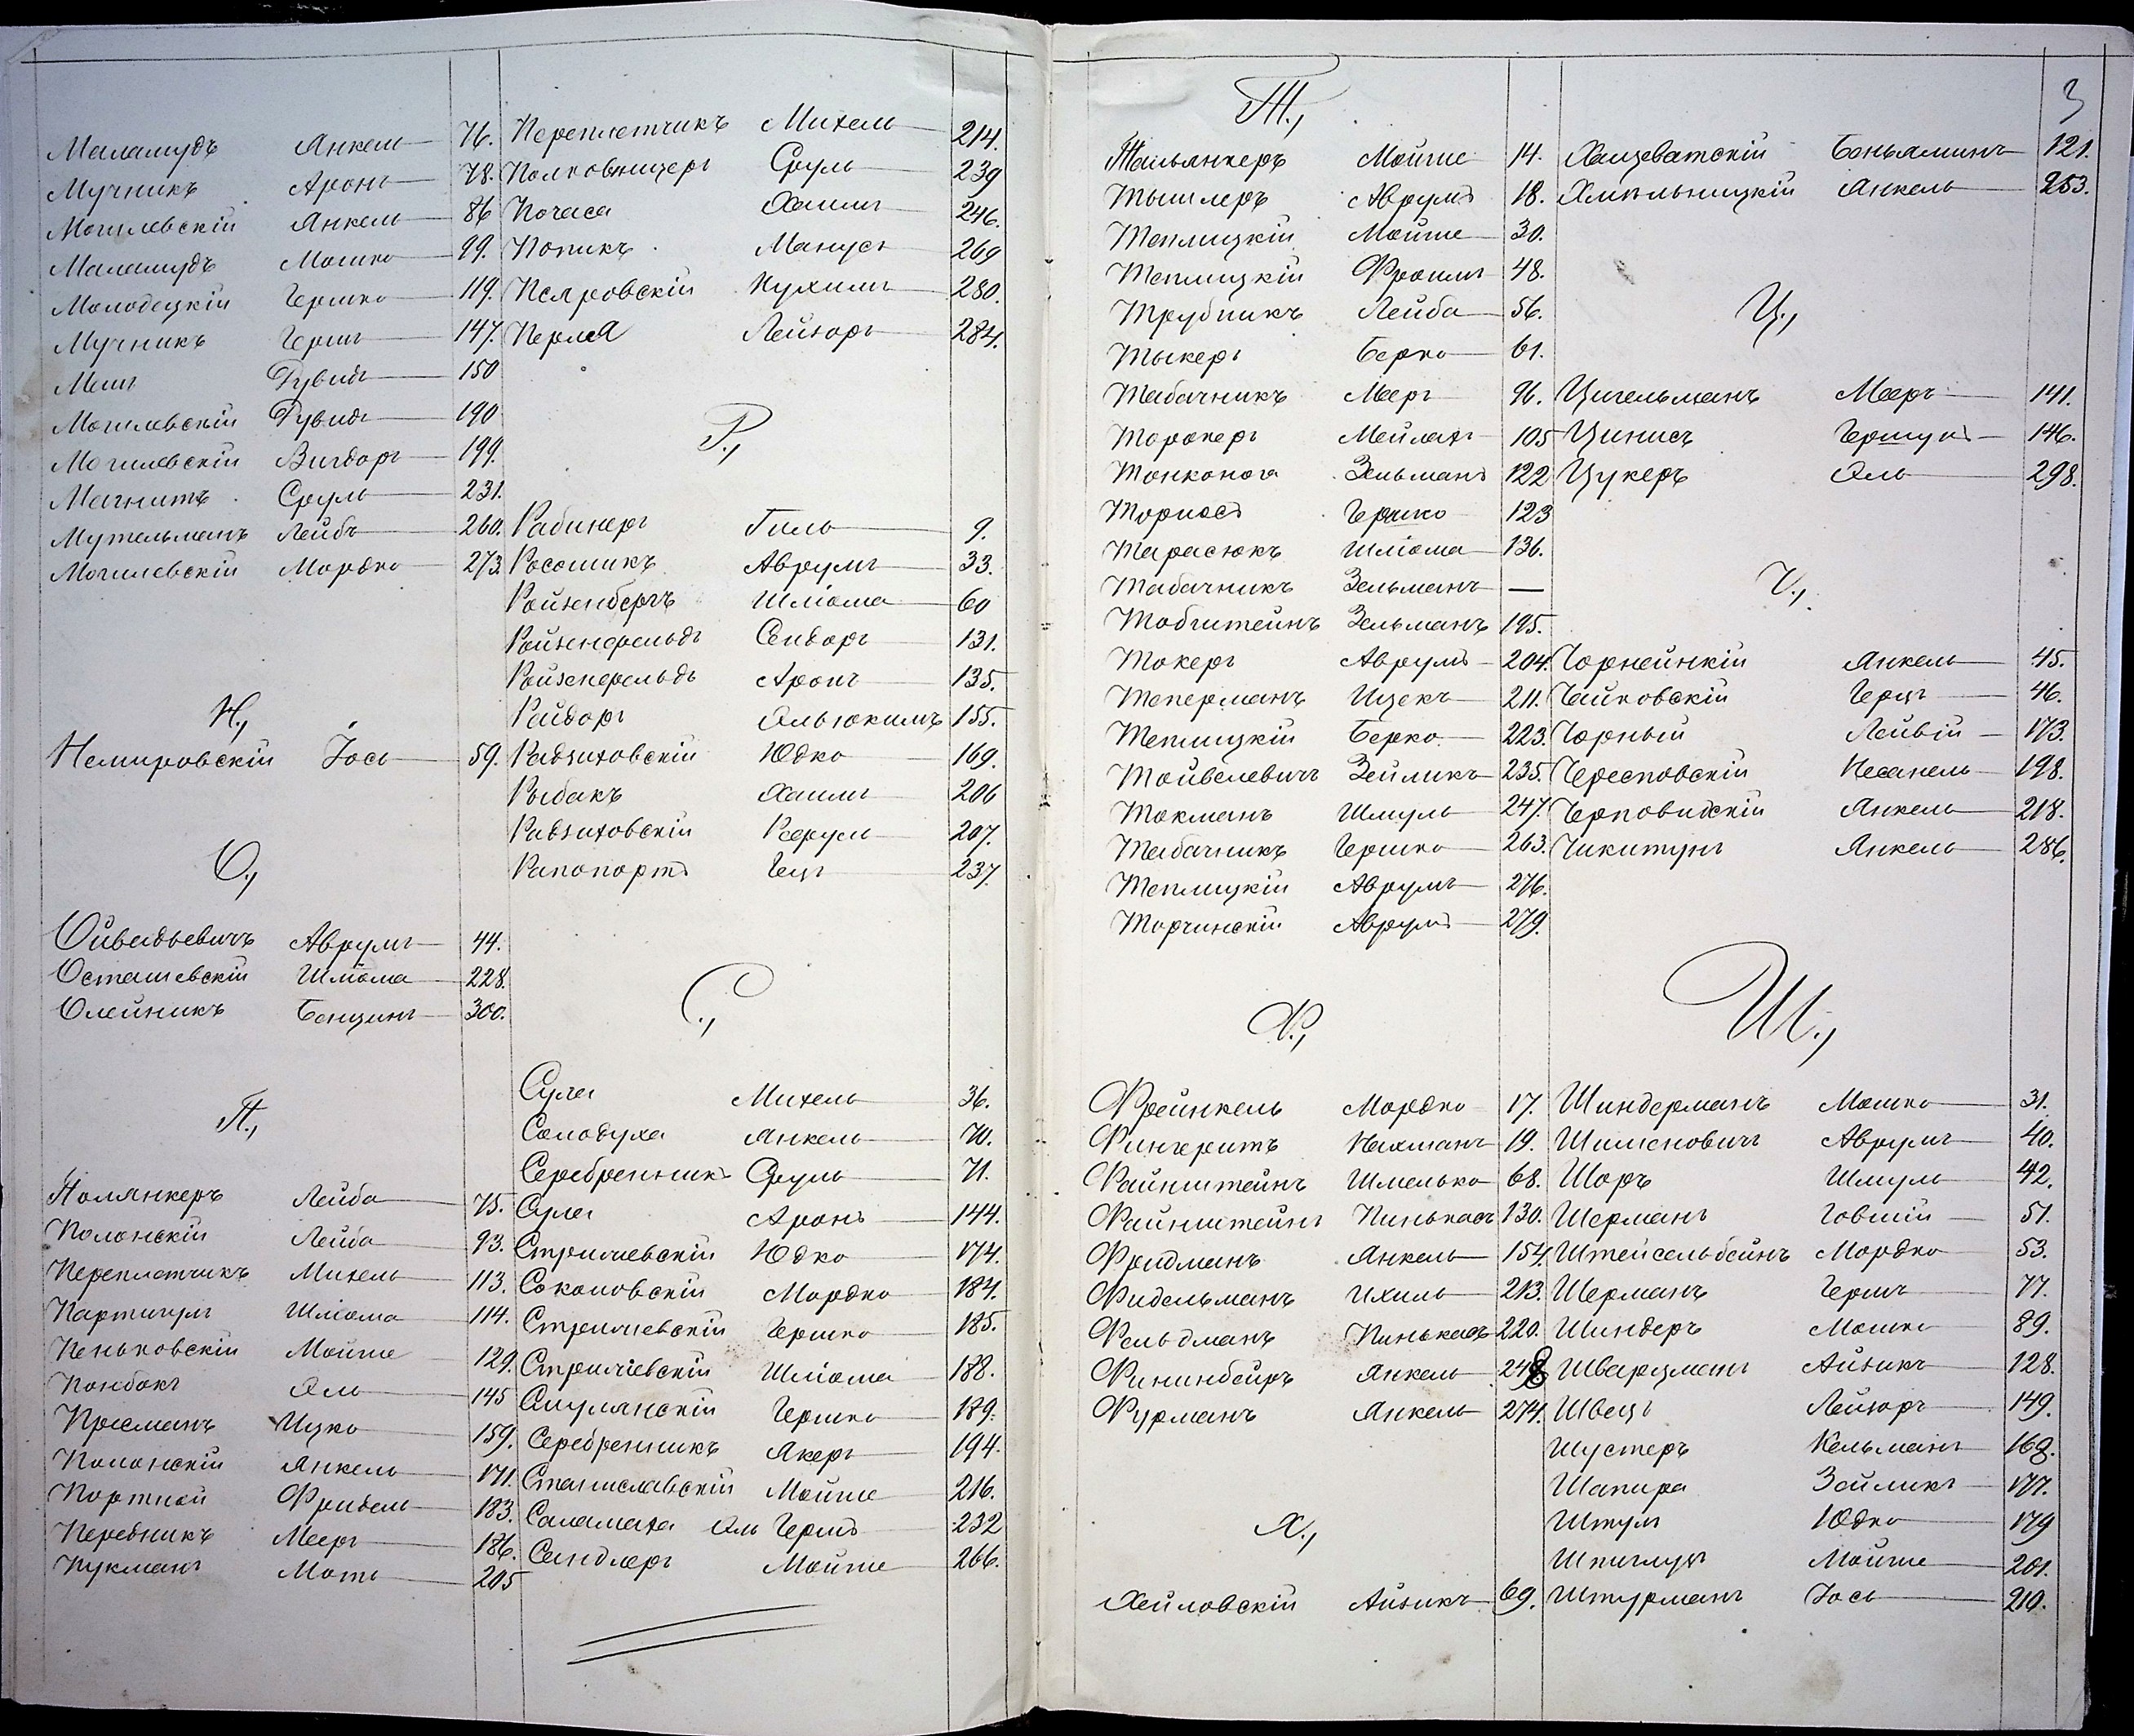 Маламудъ Янкель 76.
Мучникъ Аронъ 78.
Могилевскій Янкель 86
Маламудъ Мошко 99.
Молодецкій Гершко 119.
Мучникъ Гершъ 147.
Мешъ Рувинъ 150
Могилевскій Рувинъ 190
Могилевскій Вигдоръ 199.
Магнитъ Сруль 231.
Мутельманъ Лейбъ 260.
Могилевскій Мордко 273.
Н.,
Немировскій Іось 59.
О.,
Ойвадьевичъ Аврумъ 44.
Осташевскій Шліома 228.
Олейникъ Бенціинъ 300.
П.,
Полянкеръ Лейба 75.
Полонскій Лейба 93.
Переплетчикъ Михель 113.
Партигулъ Шліома 114.
Пеньковскій Мойше 129.
Понбокъ Эль 145
Пресманъ Ицко 159.
Полонскій Янкель 171.
Портной Фридель 183.
Передникъ Мееръ 186.
Пукманъ Моть 205
Переплетчикъ Михель 214.
Полковницеръ Сруль 239
Почаса Хаимъ 246.
Попикъ Манусъ 269
Песяровскій Нухимъ 280.
Перля Лейзоръ 284.
Р.,
Рабинеръ Гиль 9.
Росошикъ Аврумъ 33.
Ройзенбергъ Шліома 60
Ройзенфельдъ Сендоръ 131.
Ройзенфельдъ Аронъ 135.
Райдоръ Эльюкимъ 155.
Радзиховскій Юдко 169.
Рыбакъ Хаимъ 206
Радзиховскій 207.
Рапопортъ Гецъ 237.
С.,
Сула Михель 36.
Солодуха Янкель 70.
Серебренникъ Сруль 71.
Сула Аронъ 144.
Стрижевскій Юдко 174.
Соколовскій Мордко 184.
Стрижевскій Гершко 185.
Стрижевскій Шліома 188.
Смулянскій Гершко 189.
Серебренникъ Якеръ 194.
Станиславскій Мойше 216.
Саламаха Эль Гершъ 232
Сандлеръ Мойше 266.
3
Т.,
Тальянкеръ Мойше 14.
Тышлеръ Аврумъ 18.
Теплицкій Мойше 30.
Теплицкій Фроимъ 48.
Трубникъ Лейба 56.
Тыкеръ Берко 61.
Табачникъ Мееръ 96.
Торокеръ Мейлахъ 105
Тонконога Зельманъ 122
Торносъ Гершко 123
Тарасюкъ Шліома 136.
Табачникъ Зельманъ —
Товбштейнъ Зельманъ 195.
Токеръ Аврумъ 204.
Теперманъ Ицекъ 211.
Теплицкій Берко 223.
Тойвелевичъ Зейликъ 235.
Токманъ Шмуль 247.
Табачникъ Гершко 263.
Теплицкій Аврумъ 276.
Торчинскій Аврумъ 279.
Ф.,
Френкель Мордко 17.
Фингеритъ Нахманъ 19.
Файнштейнъ Шмелько 68.
Файнштейнъ Пинькасъ 130.
Фридманъ Янкель 154.
Фидельманъ Ихиль 213.
Фельдманъ Пинькасъ 220.
Фининбейръ Янкель 248
Фурманъ Янкель 274.
Х.,
Хейловскій Айзикъ 69.
Хащеватскій Беньяминъ 121.
Хмельницкій Янкель 253.
Ц.,
Цигельманъ Мееръ 141.
Цинисъ Гершунъ 146.
Цукеръ Эль 298.
Ч.,
Чорнейнкій Янкель 45.
Чайковскій Герцъ 46.
Чорный Лейвій 173.
Чересповскій Несанель 198.
Черповицкій Янкель 218.
Чикитунъ Янкель 286.
Ш.,
Шиндерманъ Мошко 31.
Шименовичъ Аврумъ 40.
Шоръ Шмуль 42.
Шерманъ Говшій 51.
Штейсельбейнъ Мордко 53.
Шерманъ Гершъ 77.
Шиндеръ Мошко 89.
Шварцманъ Айзикъ 128.
Швецъ Лейзоръ 149.
Шустеръ Кельманъ 168.
Шапира Зейликъ 177.
Штулъ Юдко 179
Шпиглузъ Мойше 201.
Штурманъ Іось 210.